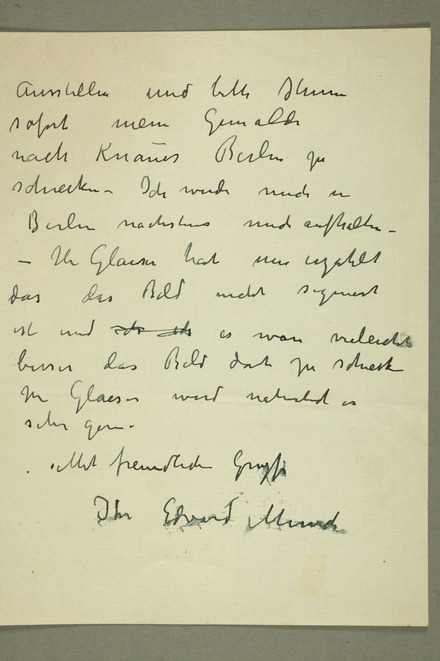 Ausstellen und bitte Ihnen
sofort mein Gemälde
nach Knaurs Berlin zu
schicken – Ich werde mich in
Berlin nächstens mich aufhalten –
– Hr Glaeser hat mir erzahlt
das das Bild nicht signiert
ist und es war vieleicht
besser das Bild dort zu schicken
Hr Glaeser word naturlich es
sehr gern –
Mit freundlichen Gruss
Ihr Edvard Munch